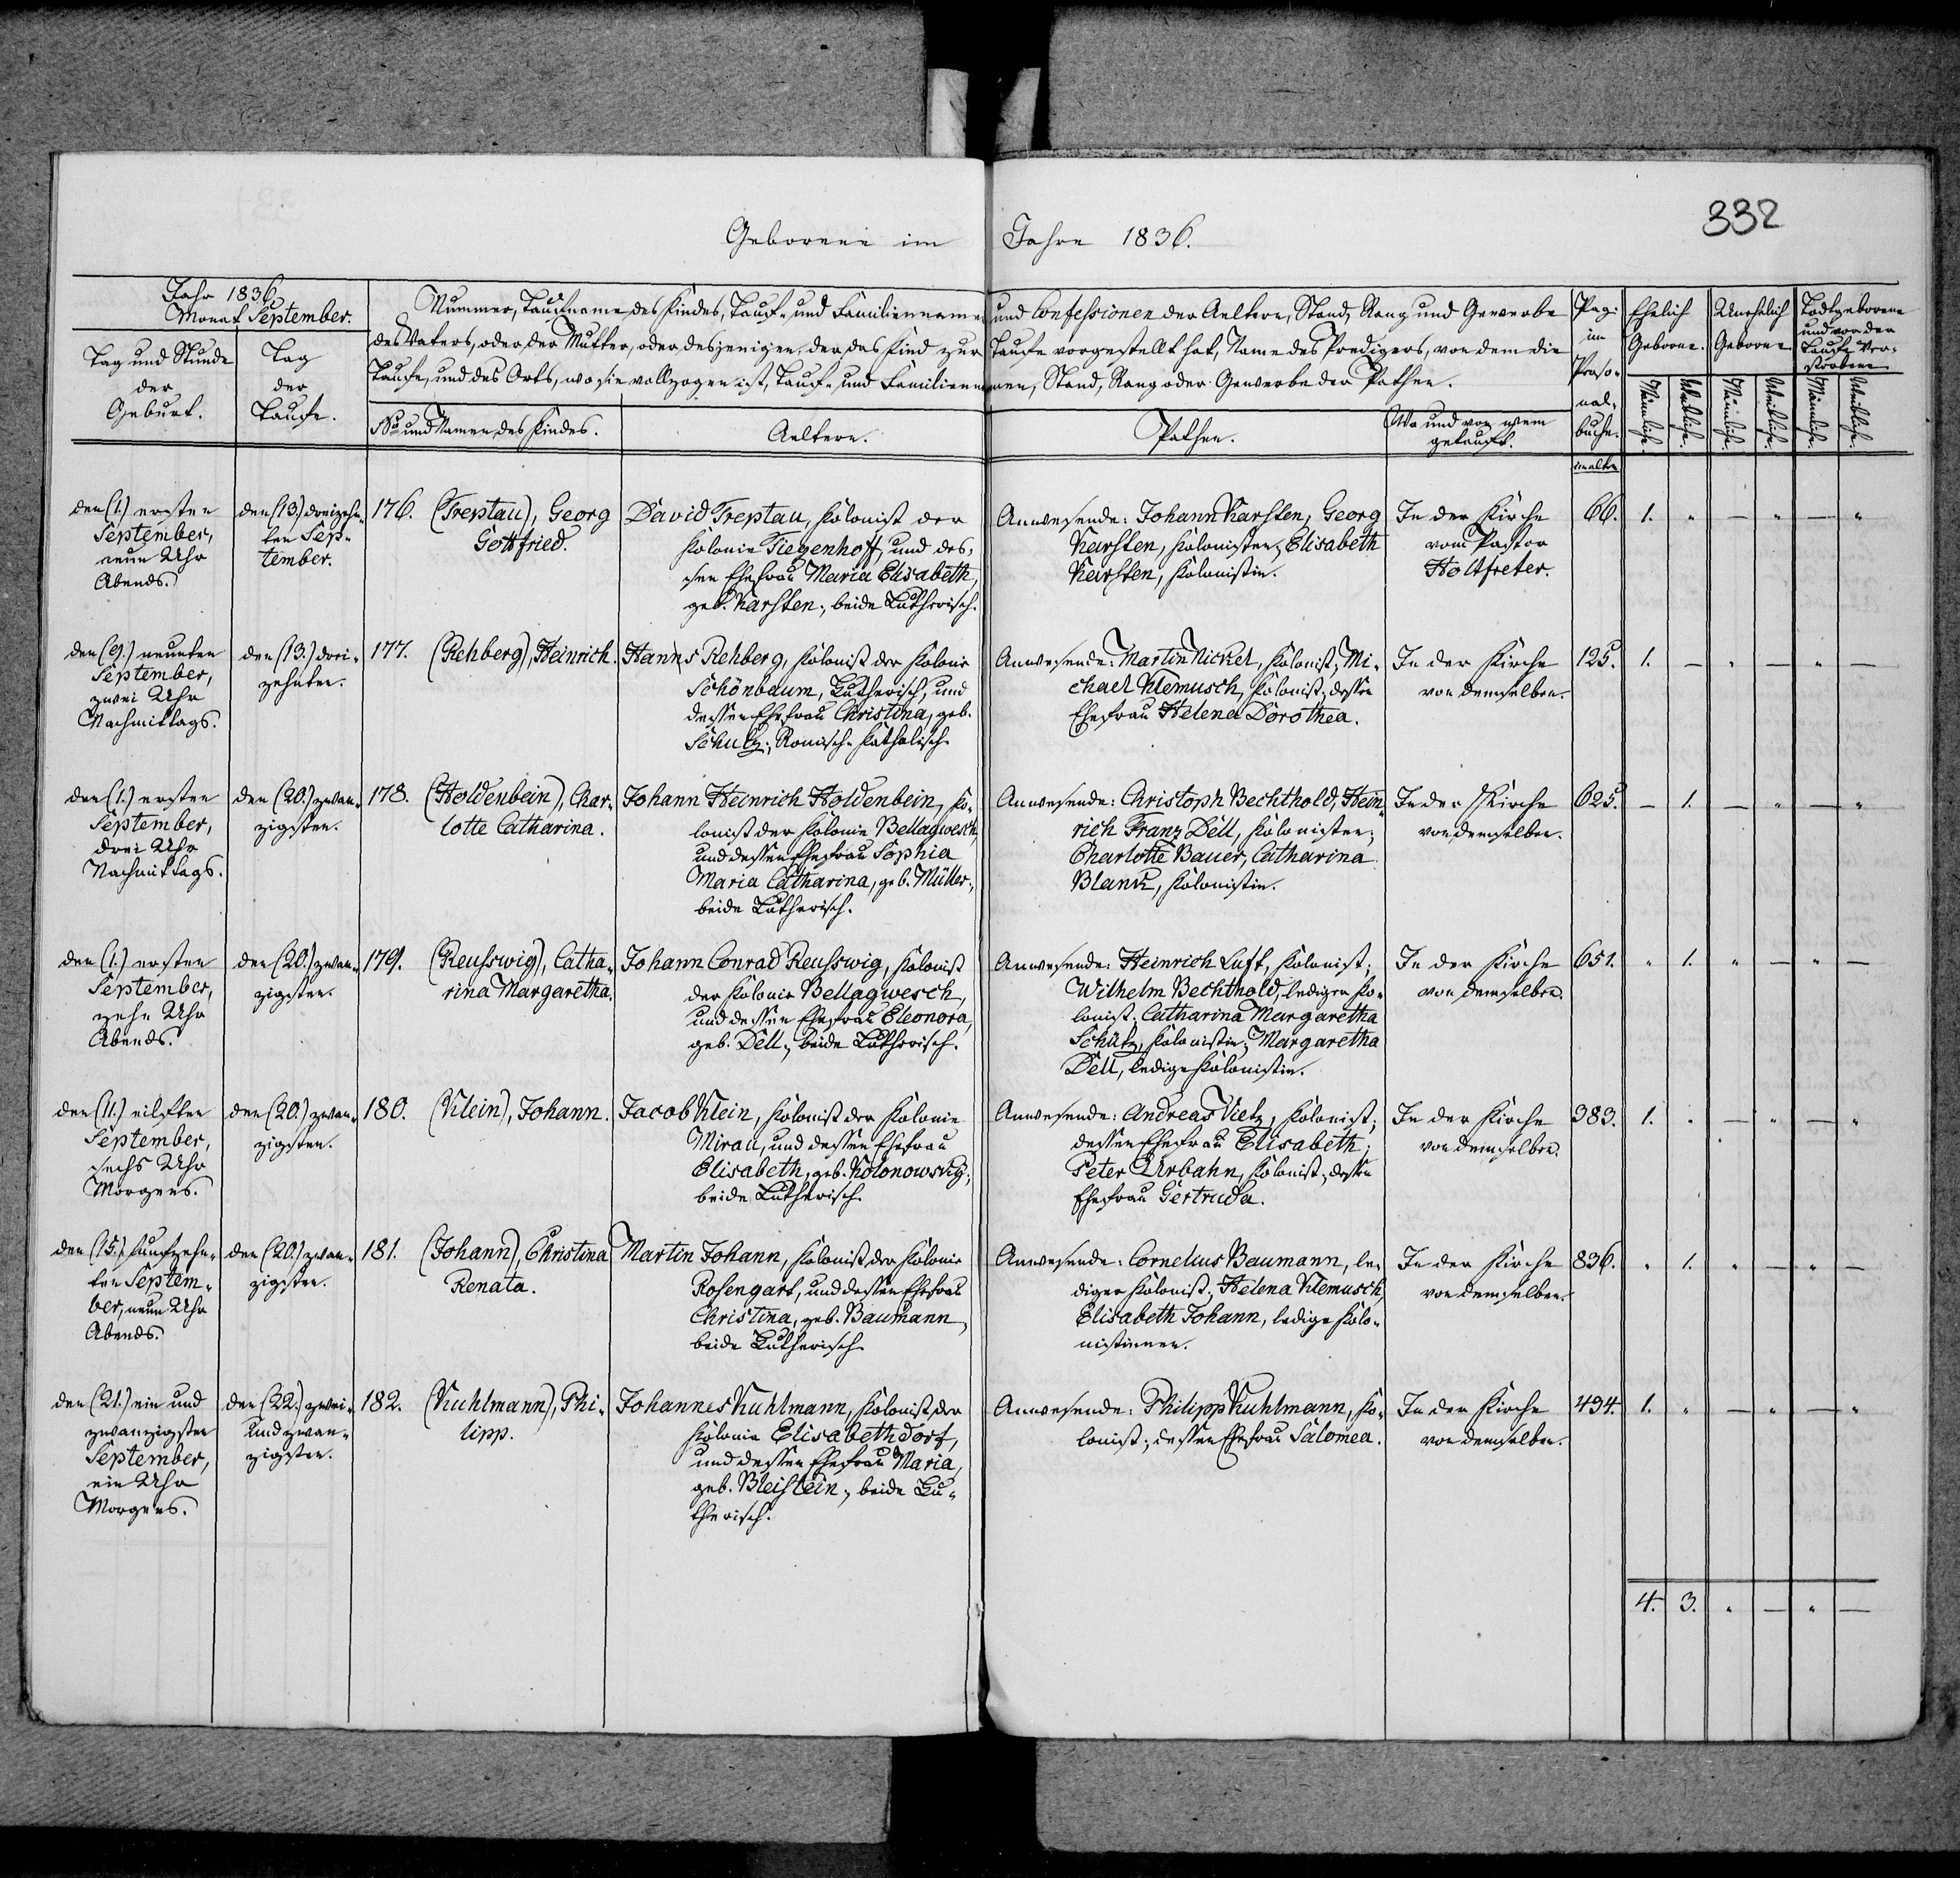 332
Geborene im Jahre 1836.
Jahr 1836
Monat September.
Tag und Stunde
der
Geburt.
Tag
der
Taufe.
Nummer, Taufname des Kindes, Tauf- und Familienname und Confessionen der Aeltern, Stand, Rang und Gewerbe
des Vaters, oder der Mutter, oder desjenigen, der das Kind zur Taufe vorgestellt hat, Name des Predigers, von dem die
Taufe, und des Orts, wo sie vollzogen ist, Tauf- und Familiennamen, Stand, Rang oder Gewerbe der Pathen.
No und Namen des Kindes.
Aeltern.
Pathen.
Wo und von wem
getauft.
Pag:
im
Perso-
nal-
buche.
Ehelich
Geborne.
Unehelich
Geborne
Todtgeborene
und vor der
Taufe Ver-
storbene
Männliche.
Weibliche.
Männliche.
Weibliche.
Männliche.
Weibliche.
im alten
den (1.) ersten
September,
neun Uhr
Abends.
den (13.) dreizehn-
ten Sep-
tember.
176. (Treptau), Georg
Gottfried.
David Treptau, Kolonist der
Kolonie Tiegenhoff, und des-
sen Ehefrau Maria Elisabeth,
geb. Karsten; beide Lutherisch.
Anwesende: Johann Karsten, Georg
Karsten, Kolonisten; Elisabeth
Karsten, Kolonistin.
In der Kirche
vom Pastor
Holtfreter.
66. 1. " — " — "
den (9.) neunten
September,
zwei Uhr
Nachmittags.
den (13.) drei-
zehnten.
177. (Rehberg), Heinrich.
Hanns Rehberg, Kolonist der Kolonie
Schönbaum, Lutherisch, und
dessen Ehefrau Christina, geb.
Schulz; Römisch-Katholisch.
Anwesende: Martin Nickel, Kolonist; Mi-
chael Klemusch, Kolonist; dessen
Ehefrau Helena Dorothea.
In der Kirche
von demselben.
125. 1. — " — " —
den (1.) ersten
September,
drei Uhr
Nachmittags.
den (20.) zwan-
zigsten.
178. (Holdenbein), Char-
lotte Catharina.
Johann Heinrich Holdenbein, Ko-
lonist der Kolonie Bellagwesch,
und dessen Ehefrau Sophia
Maria Catharina, geb. Müller;
beide Lutherisch.
Anwesende: Christoph Bechthold, Hein-
rich Franz Dell, Kolonisten;
Charlotte Bauer, Catharina
Blank, Kolonistin.
In der Kirche
von demselben.
625. — 1. — " — "
den (1.) ersten
September,
zehn Uhr
Abends.
den (20.) zwan-
zigsten.
179. (Reusswig), Catha-
rina Margaretha.
Johann Conrad Reusswig, Kolonist
der Kolonie Bellagwesch,
und dessen Ehefrau Eleonora,
geb. Dell; beide Lutherisch.
Anwesende: Heinrich Luft, Kolonist;
Wilhelm Bechthold, lediger Ko-
lonist; Catharina Margaretha
Schütz, Kolonistin; Margaretha
Dell, ledige Kolonistin.
In der Kirche
von demselben.
651. " 1. " — " —
den (11.) eilften
September,
sechs Uhr
Morgens.
den (20.) zwan-
zigsten.
180. (Klein), Johann.
Jacob Klein, Kolonist der Kolonie
Mirau, und dessen Ehefrau
Elisabeth, geb. Kolonowsky;
beide Lutherisch.
Anwesende: Andreas Vietz, Kolonist;
dessen Ehefrau Elisabeth;
Peter Urbahn, Kolonist; dessen
Ehefrau Gertruda.
In der Kirche
von demselben.
383. 1. " — " — "
den (15.) funfzehn-
ten Septem-
ber, neun Uhr
Abends.
den (20.) zwan-
zigsten.
181. (Johann), Christina
Renata.
Martin Johann, Kolonist der Kolonie
Rosengart, und dessen Ehefrau
Christina, geb. Baumann,
beide Lutherisch.
Anwesende: Cornelius Baumann, le-
diger Kolonist; Helena Klemusch,
Elisabeth Johann, ledige Kolo-
nistinnen.
In der Kirche
von demselben.
836. " 1. " — " —
den (21.) ein und
zwanzigsten
September,
ein Uhr
Morgens.
den (22.) zwei
und zwan-
zigsten.
182. (Kuhlmann), Phi-
lipp.
Johannes Kuhlmann, Kolonist der
Kolonie Elisabethdorf,
und dessen Ehefrau Maria,
geb. Bleistein; beide Lu-
therisch.
Anwesende: Philipp Kuhlmann, Ko-
lonist; dessen Ehefrau Salomea.
In der Kirche
von demselben.
494. 1. " — " — "
4. 3. " — " —